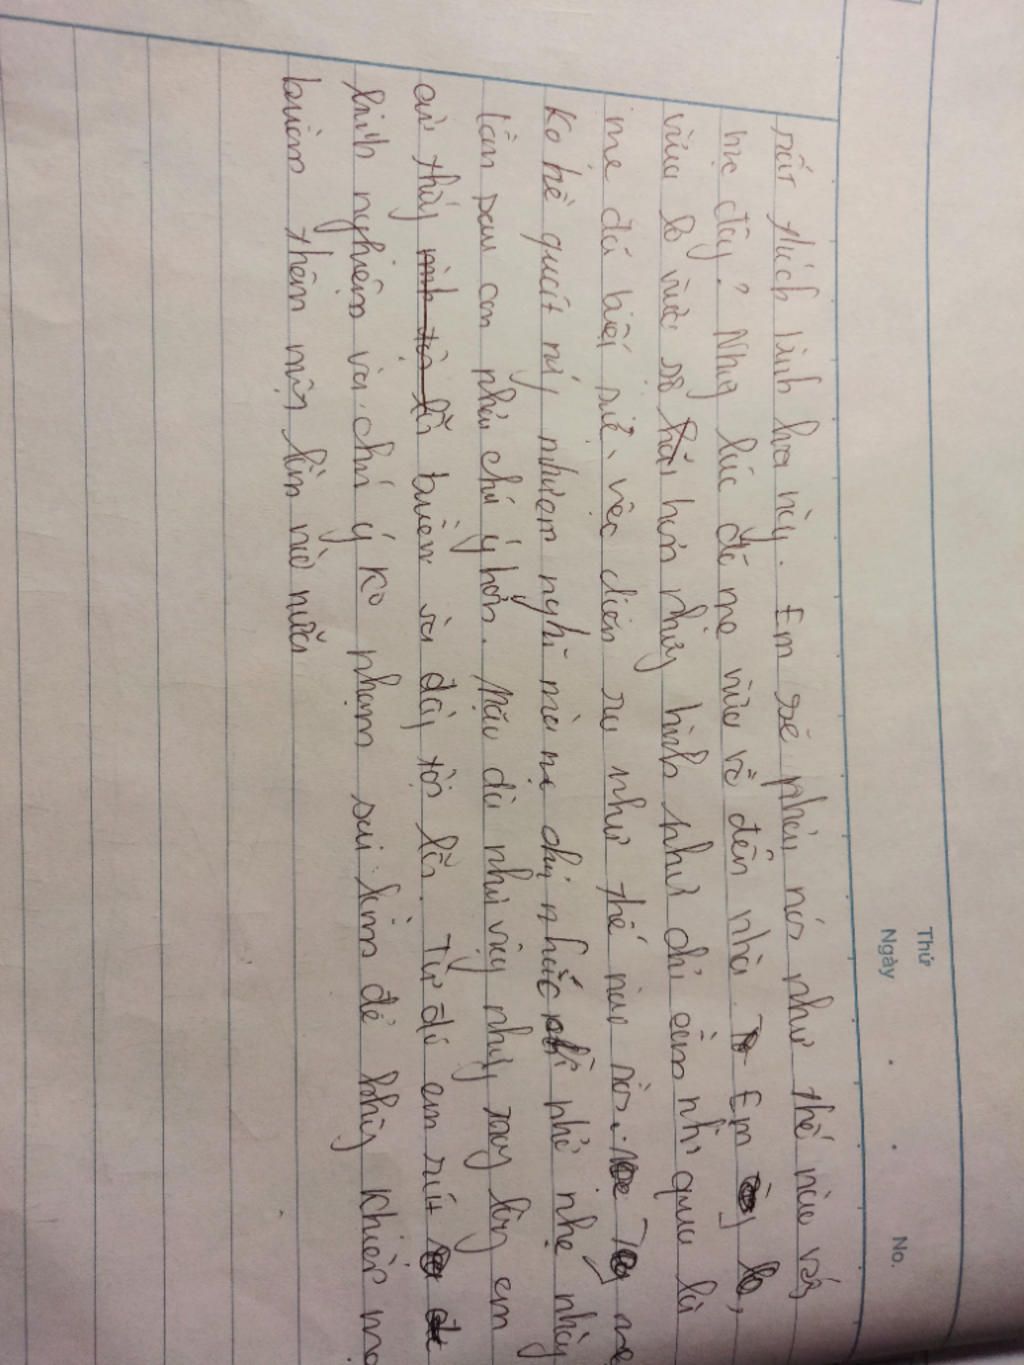 Thứ
Ngày
No.
rất thích bình hoa này. Em sẽ phải nói như thế nào với
mẹ đây? Nhưg lúc đó mẹ vừa về đến nhà. Em
vừa lo vừa sợ hơn nhưg hình như chỉ cần nhìn qua là
mẹ đã biết việc diễn ra như thế nào rồi. mẹ
ko hề quát mắng nghĩ mà mẹ chỉ nhắc nhở nhẹ nhàng
lần sau con phải chú ý hơn. Mặc dù như vậy nhưg trog lòng em
cứ thấy buồn và đầy tội lỗi. Từ đó em rút
kinh nghiệm và chú ý ko phạm sai lầm để khôg khiến mẹ
buồn thêm một lần nào nữa